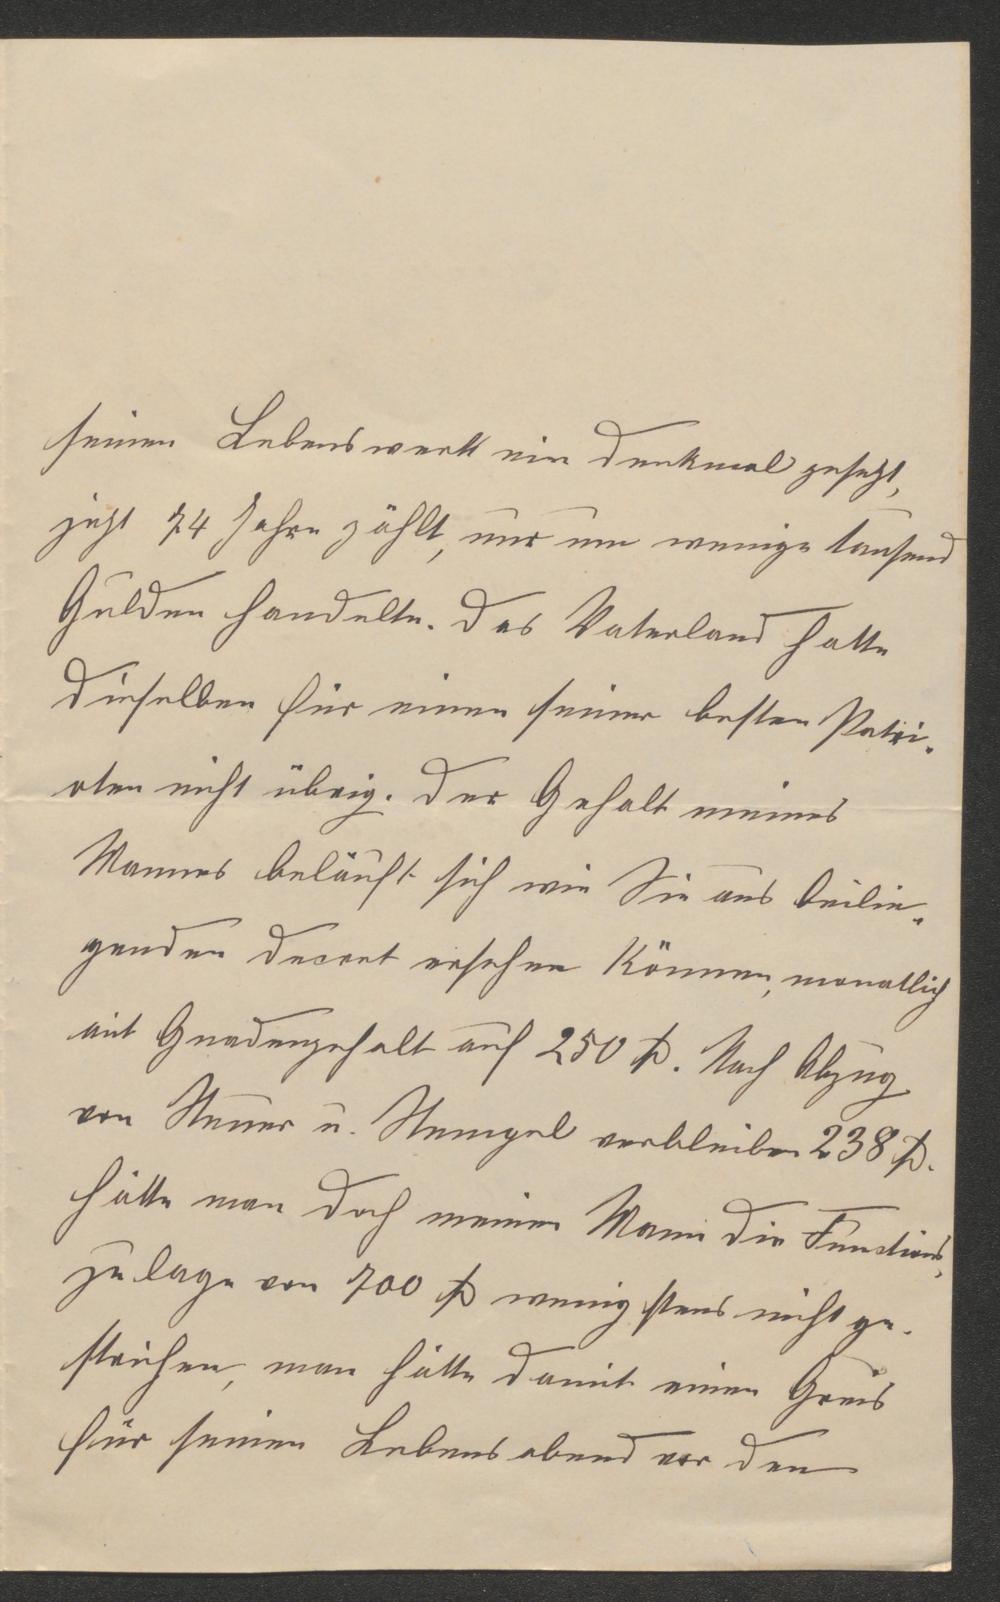 seinen Lebenswerk ein Denkmal gesetzt,
jetzt 74 Jahre zählt, nur um wenige tausend
Gulden handelte. Das Vaterland hatte
dieselben für einen seiner besten Patri-
oten nicht übrig. Der Gehalt meines
Mannes beläuft sich wie Sie aus beilie-
genden Decret ersehen können, monatlich
mit Gnadengehalt auf 250 fl. Nach Abzug
von Steuer u. Stempel verbleiben 238 fl.
hätte man doch meinen Mann die Functions-
zulage von 700 fl wenigstens nicht ge-
strichen, man hätte damit einen Greis
für seinen Lebensabend vor den